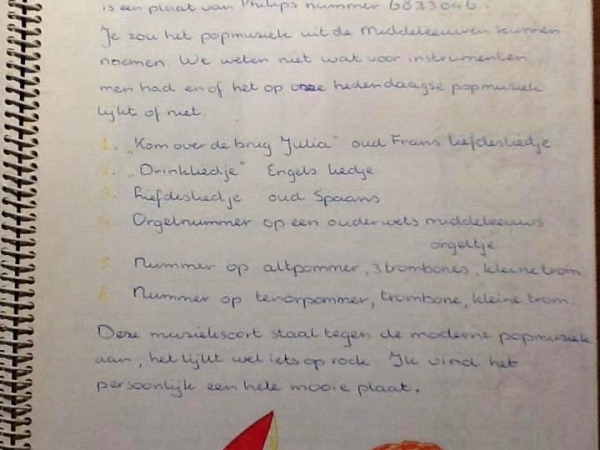 is een plaat van Philips nummer 6833046.
Je zou het popmuziek uit de middeleeuwen kunnen
noemen. We weten niet wat voor instrumenten
men had en of het op onze hedendaagse popmuziek
lijkt of niet.
1. "Kom over de brug Julia" oud Frans liefdesliedje
2. "Drinkliedje" Engels liedje
3. Liefdesliedje oud Spaans
4. Orgelnummer op een ouderwets middeleeuws
orgeltje.
5 Nummer op altpommer, 3 trombones, kleine trom.
6 Nummer op tenorpommer, trombone, kleine trom.
Deze muzieksoort staat tegen de moderne popmuziek
aan, het lijkt wel iets op rock. Ik vind het
persoonlijk een hele mooie plaat.